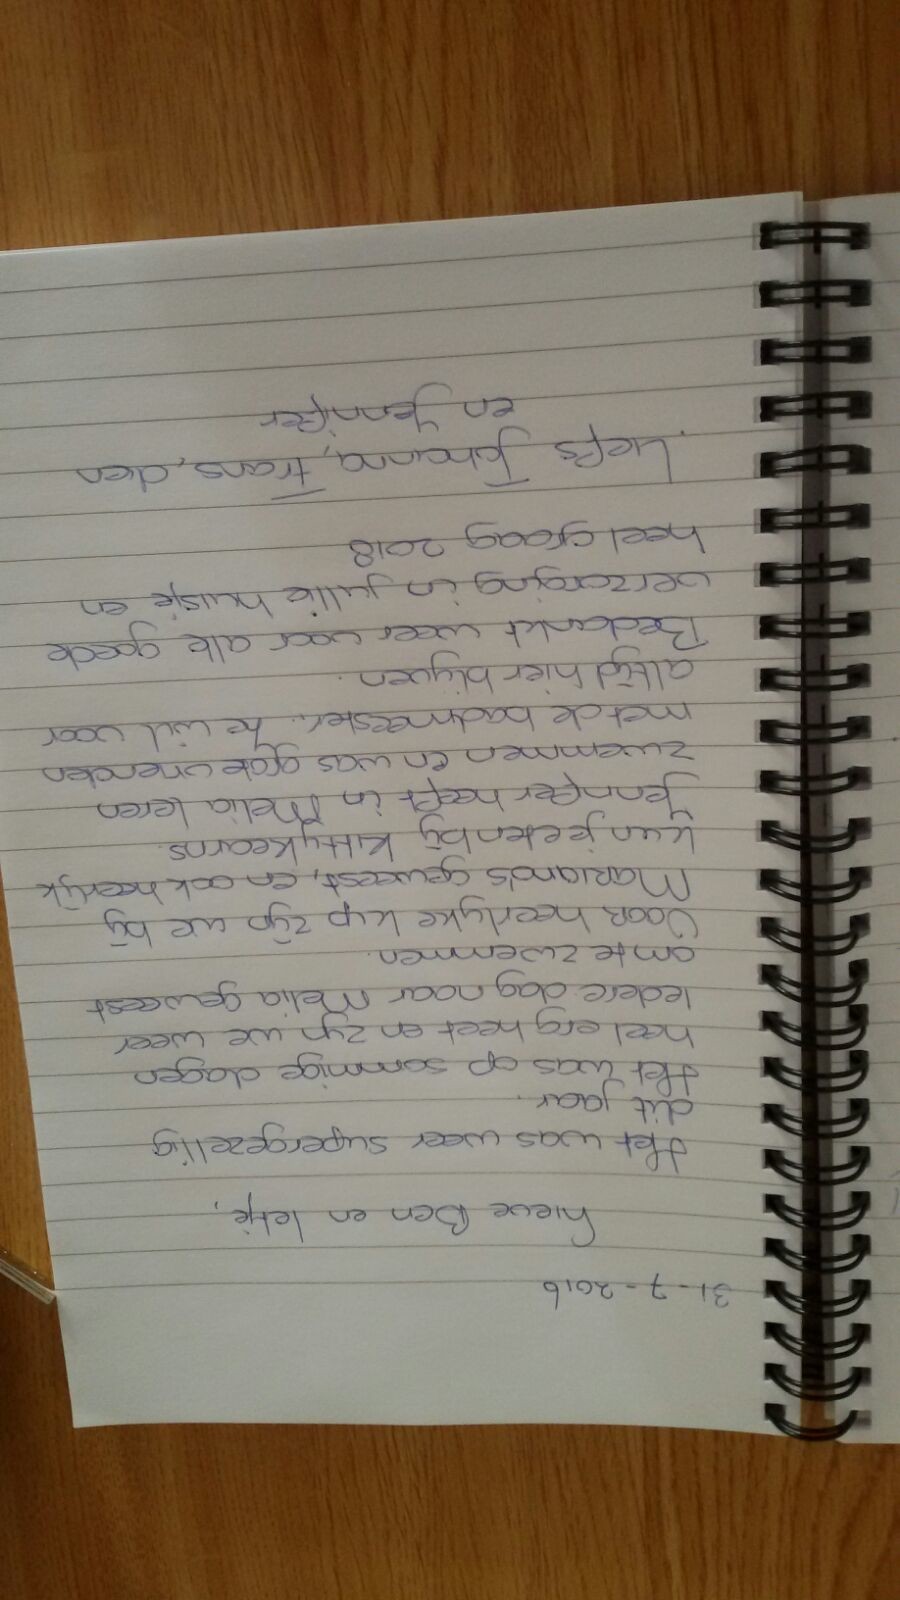 31-7-2016
Lieve Ben en Ietje,
Het was weer supergezellig
dit jaar.
Het was op sommige dagen
heel erg heet en zijn we weer
Iedere dag naar Melia geweest
om te zwemmen.
Voor heerlijke kip zijn we bij
Marianos geweest, en ook heerlijk
kun je eten bij Kittykearns.
Jennifer heeft in Melia leren
zwemmen en was gote vrienden
met de badmeester. Ze wil voor
altijd hier blijven.
Bedankt weer voor alle goede
verzorging in jullie huisje en
heel graag 2018
Liefs Johanna, Frans, dien
en Jennifer